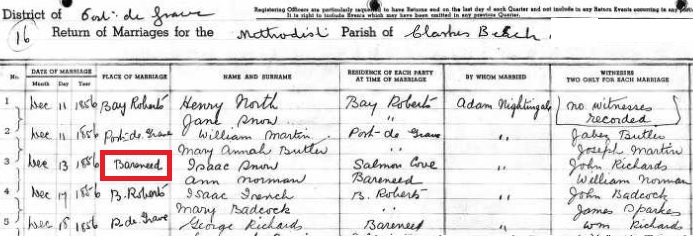 District of Port-de Grave
Registering Officers are particularly requested to have Returns end on the last day of each Quarter and not include in any Return Events occurring in any
It is right to include Events which may have been omitted in any previous Quarter.
16 Return of Marriages for the Methodist Parish of Clarkes Beach.
No. DATE OF MARRIAGE Month Day Year PLACE OF MARRIAGE NAME AND SURNAME RESIDENCE OF EACH PARTY AT TIME OF MARRIAGE BY WHOM MARRIED WITNESSES TWO ONLY FOR EACH MARRIAGE
1 Dec 11 1856 Bay Roberts Henry North Bay Roberts Adam Nightingale no witnesses
Jane Snow " recorded
2 Dec 11 1856 Port-de-Grave William Martin Port-de Grave " Jabez Butler
Mary Annah Butler " Joseph Martin
3 Dec 13 1856 Bareneed Isaac Snow Salmon Cove " John Richards
Ann Norman Bareneed William Norman
4 Dec 17 1856 B. Roberts Isaac French B. Roberts " John Badcock
Mary Badcock " James Sparkes
5 Dec 18 1856 P. de Grave George Richards Bareneed " Wm Richards